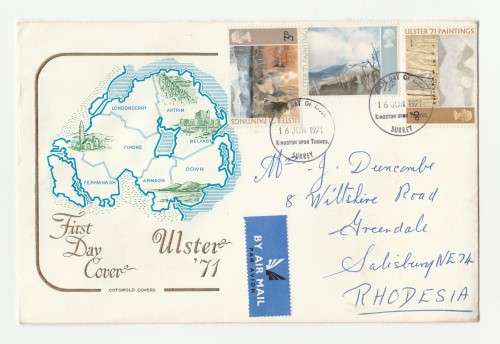 3p
ULSTER '71 PAINTINGS
ULSTER '71 PAINTINGS
ULSTER '71 PAINTINGS
FIRST DAY OF ISSUE
16 JUN 1971
KINGSTON UPON THAMES,
SURREY
DAY OF
16 JUN 1971
KINGSTON UPON THAMES,
SURREY
LONDONDERRY
ANTRIM
TYRONE
BELFAST
FERMANAGH
ARMAGH
DOWN
First
Day
Cover
Ulster
'71
COTSWOLD COVERS
BY AIR MAIL
PAR AVION
J. Duncombe
8 Wiltshire Road
Greendale
Salisbury NE74
RHODESIA